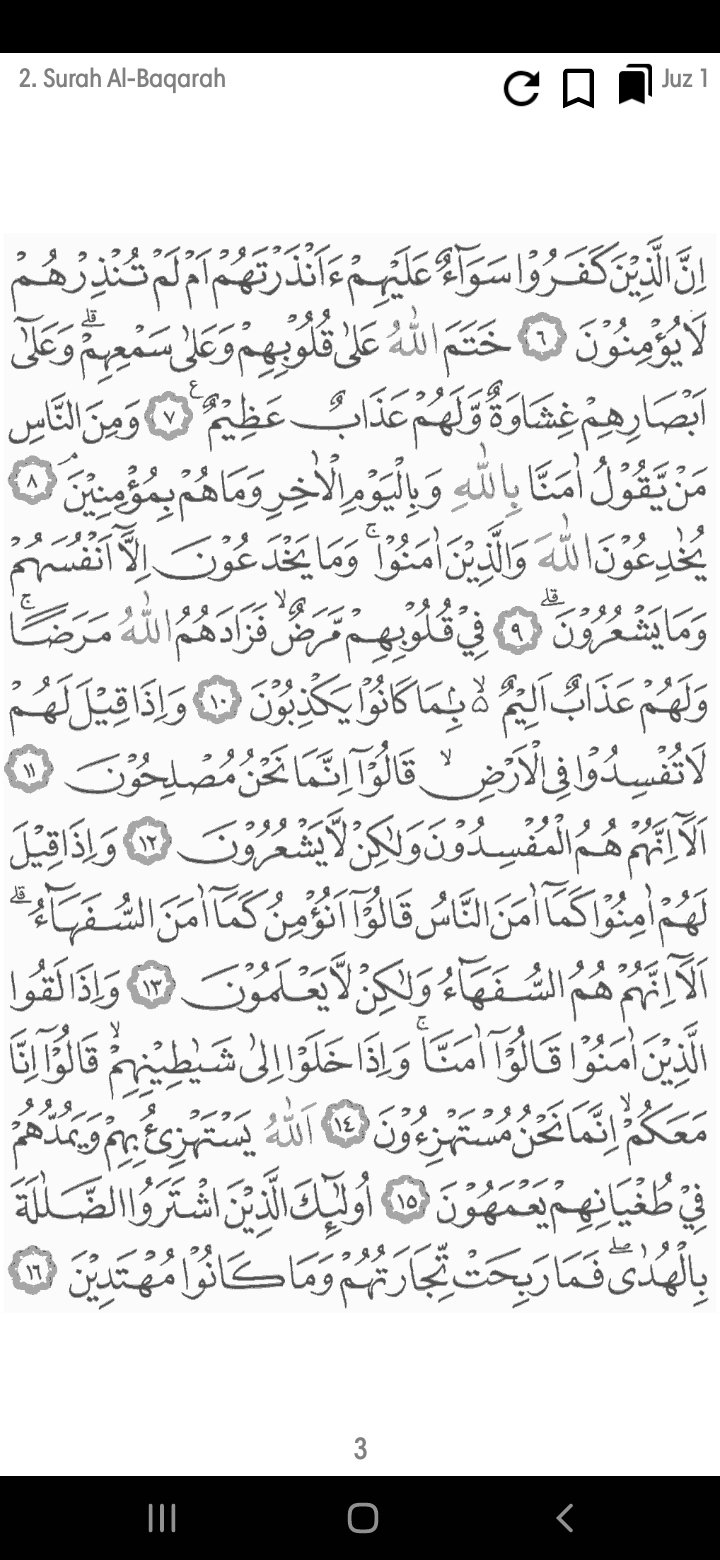 2. Surah Al-Baqarah
Juz 1
اِنَّ الَّذِيْنَ كَفَرُوْا سَوَآءٌ عَلَيْهِمْ ءَاَنْذَرْتَهُمْ اَمْ لَمْ تُنْذِرْهُمْ
لَا يُؤْمِنُوْنَ ٦ خَتَمَ اللّٰهُ عَلٰى قُلُوْبِهِمْ وَعَلٰى سَمْعِهِمْ ۗ وَعَلٰٓى
اَبْصَارِهِمْ غِشَاوَةٌ وَّلَهُمْ عَذَابٌ عَظِيْمٌ ࣖ ٧ وَمِنَ النَّاسِ
مَنْ يَّقُوْلُ اٰمَنَّا بِاللّٰهِ وَبِالْيَوْمِ الْاٰخِرِ وَمَا هُمْ بِمُؤْمِنِيْنَۘ ٨
يُخٰدِعُوْنَ اللّٰهَ وَالَّذِيْنَ اٰمَنُوْا ۚ وَمَا يَخْدَعُوْنَ اِلَّآ اَنْفُسَهُمْ
وَمَا يَشْعُرُوْنَ ۗ ٩ فِيْ قُلُوْبِهِمْ مَّرَضٌۙ فَزَادَهُمُ اللّٰهُ مَرَضًاۚ
وَلَهُمْ عَذَابٌ اَلِيْمٌ ۙ۵ بِمَا كَانُوْا يَكْذِبُوْنَ ١٠ وَاِذَا قِيْلَ لَهُمْ
لَا تُفْسِدُوْا فِى الْاَرْضِۙ قَالُوْٓا اِنَّمَا نَحْنُ مُصْلِحُوْنَ ١١
اَلَآ اِنَّهُمْ هُمُ الْمُفْسِدُوْنَ وَلٰكِنْ لَّا يَشْعُرُوْنَ ١٢ وَاِذَا قِيْلَ
لَهُمْ اٰمِنُوْا كَمَآ اٰمَنَ النَّاسُ قَالُوْٓا اَنُؤْمِنُ كَمَآ اٰمَنَ السُّفَهَآءُ ۗ
اَلَآ اِنَّهُمْ هُمُ السُّفَهَآءُ وَلٰكِنْ لَّا يَعْلَمُوْنَ ١٣ وَاِذَا لَقُوا
الَّذِيْنَ اٰمَنُوْا قَالُوْٓا اٰمَنَّا ۚ وَاِذَا خَلَوْا اِلٰى شَيٰطِيْنِهِمْ ۙ قَالُوْٓا اِنَّا
مَعَكُمْ ۙ اِنَّمَا نَحْنُ مُسْتَهْزِءُوْنَ ١٤ اَللّٰهُ يَسْتَهْزِئُ بِهِمْ وَيَمُدُّهُمْ
فِيْ طُغْيَانِهِمْ يَعْمَهُوْنَ ١٥ اُولٰٓئِكَ الَّذِيْنَ اشْتَرَوُا الضَّلٰلَةَ
بِالْهُدٰىۖ فَمَا رَبِحَتْ تِّجَارَتُهُمْ وَمَا كَانُوْا مُهْتَدِيْنَ ١٦
3